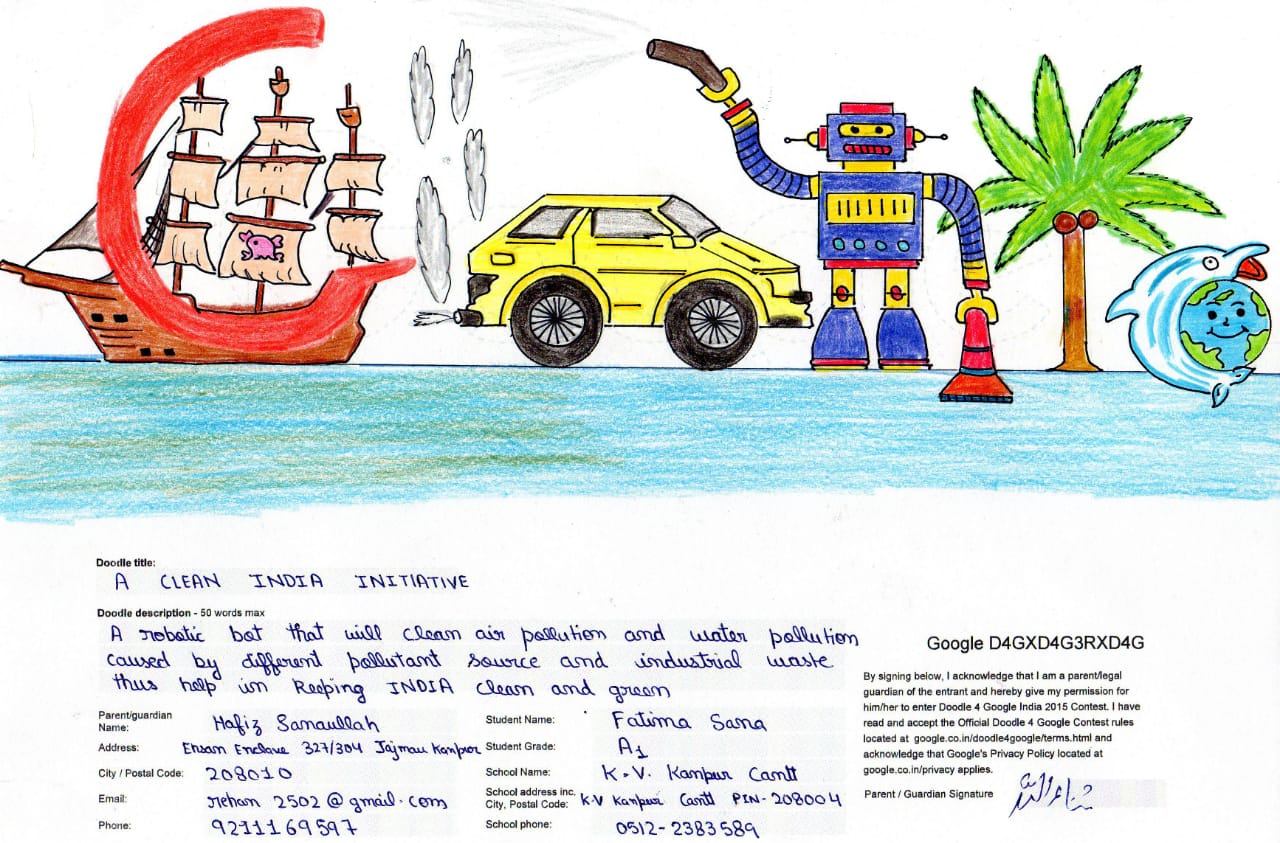 Doodle title:
A CLEAN INDIA INITIATIVE
Doodle description - 50 words max
A robotic bot that will clean air pollution and water pollution
caused by different pollutant source and industrial waste
thus help in keeping INDIA clean and green
Parent/guardian Name: Hafiz Sanaullah
Address: Ehsan Enclave 327/304 Jajmau Kanpur
City / Postal Code: 208010
Email: rehan 2502 @ gmail.com
Phone: 9211169597
Student Name: Fatima Sana
Student Grade: A1
School Name: K.V. Kanpur Cantt
School address inc. City, Postal Code: K.V Kanpur Cantt PIN-208004
School phone: 0512-2383589
Google D4GXD4G3RXD4G
By signing below, I acknowledge that I am a parent/legal
guardian of the entrant and hereby give my permission for
him/her to enter Doodle 4 Google India 2015 Contest. I have
read and accept the Official Doodle 4 Google Contest rules
located at google.co.in/doodle4google/terms.html and
acknowledge that Google's Privacy Policy located at
google.co.in/privacy applies.
Parent / Guardian Signature ثناء اللہ